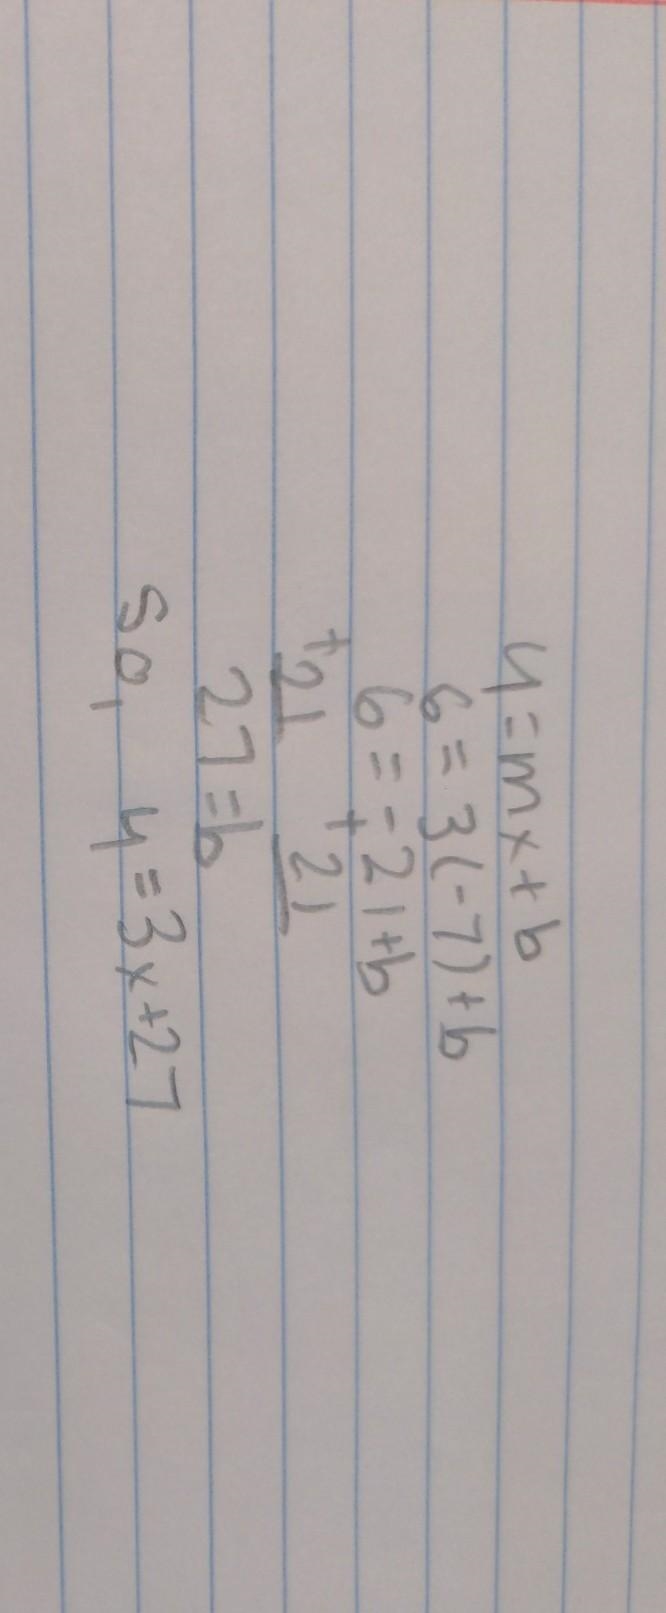 y = mx + b
6 = 3(-7) + b
6 = -21 + b
+21 +21
27 = b
So, y = 3x + 27